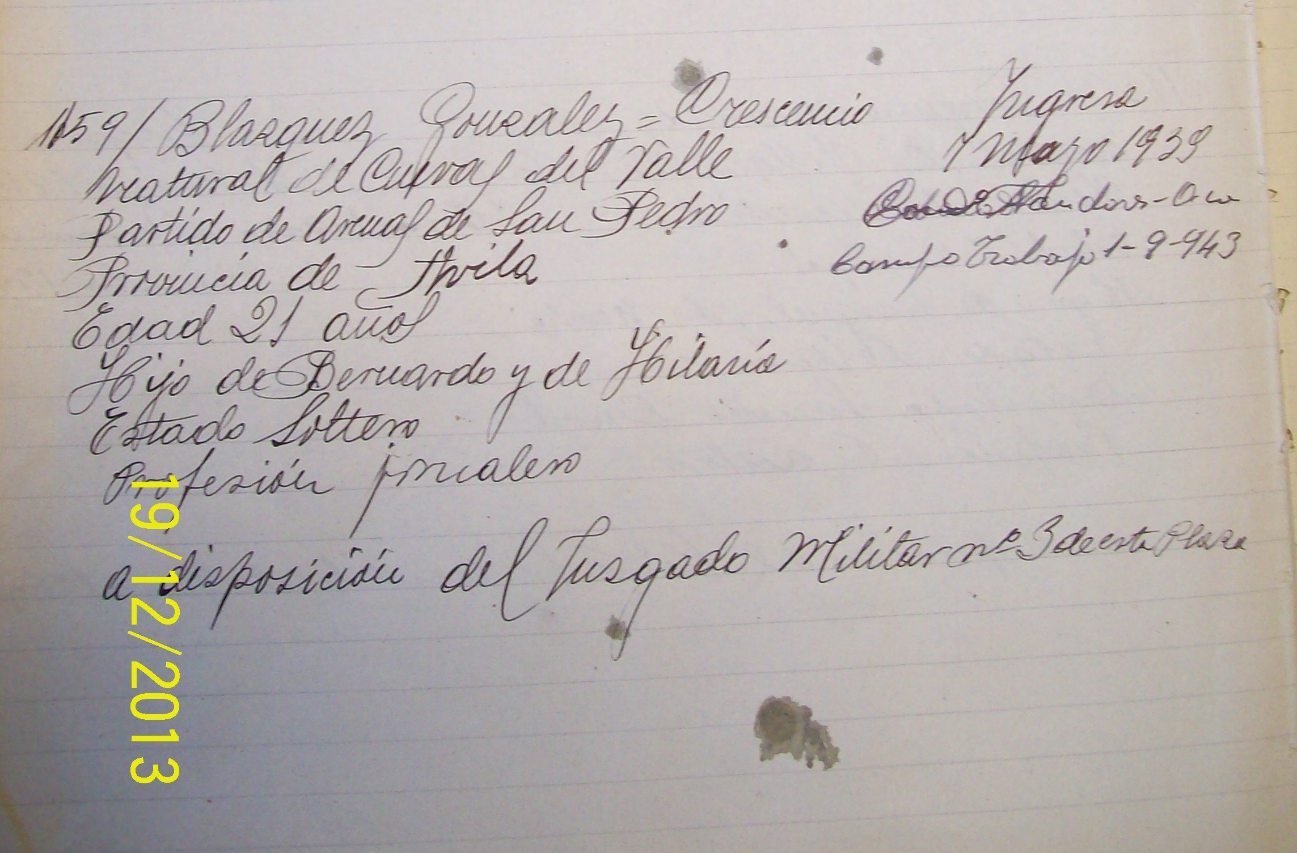 159/ Blasquez Gonzalez = Crescencio
Natural de Cuevas del Valle
Partido de Arenas de San Pedro
Provincia de Avila
Edad 21 años
Hijo de Bernardo y de Hilaria
Estado Soltero
Profesión jornalero
a disposición del Jusgado Militar nº 3 de esta Plaza
Ingresa
7 Mayo 1939
Campo Trabajo 1-9-943
19/12/2013